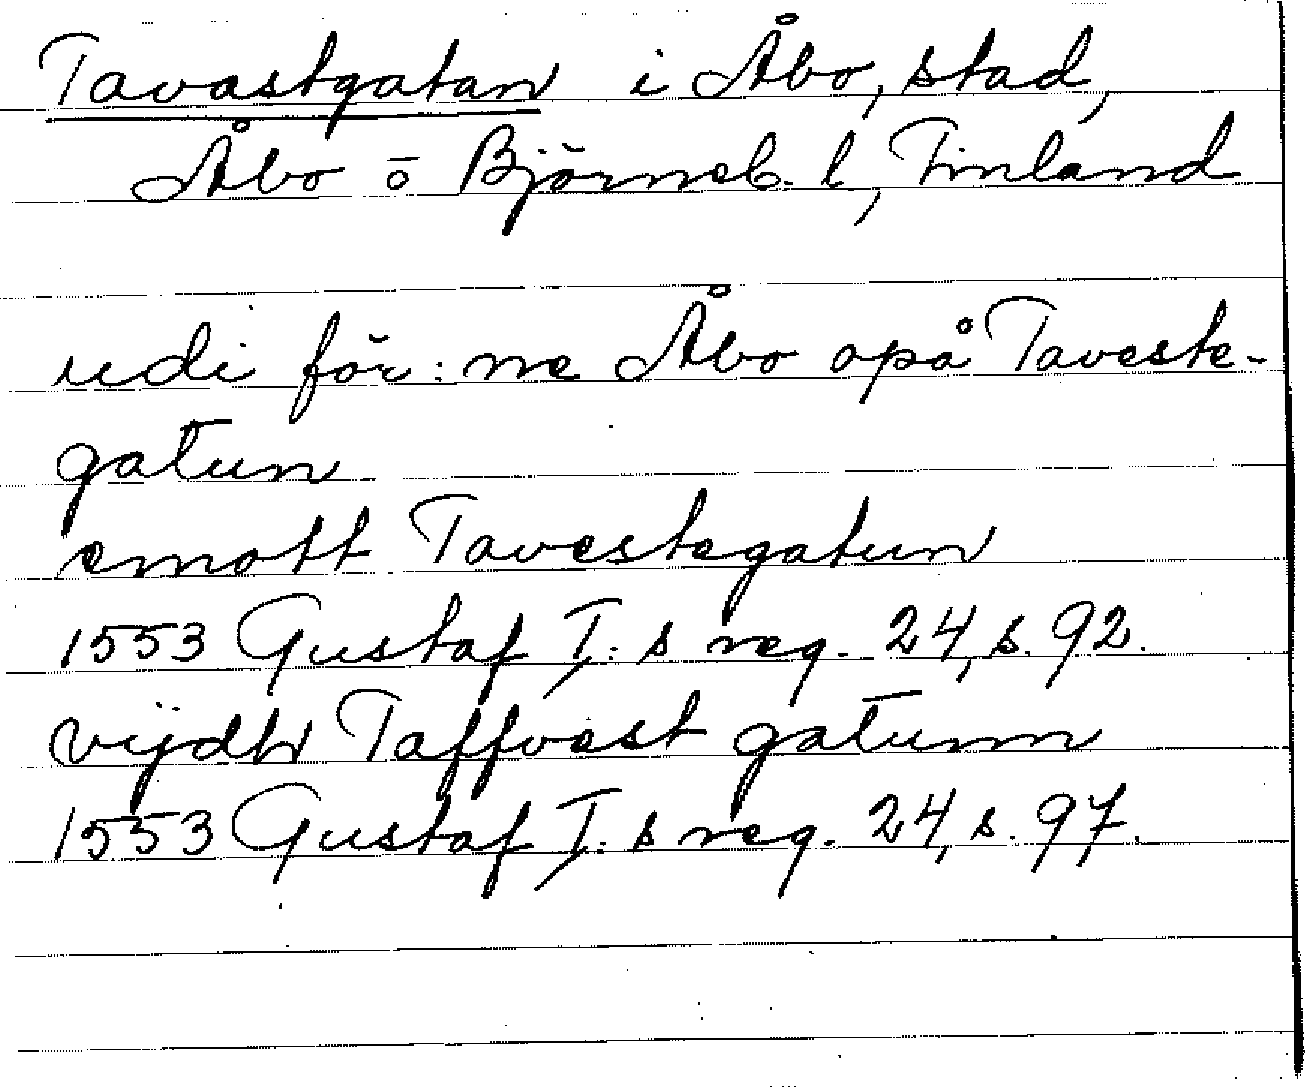 Tavastgatan i Åbo, stad,
Åbo o Björneb. l, Finland
udi för:ne Åbo opå Taveste-
gatun
emott Tavestegatun
1553 Gustaf I:s reg. 24, s. 92.
vijdh Taffvest gatunn
1553 Gustaf I:s reg. 24, s. 97.